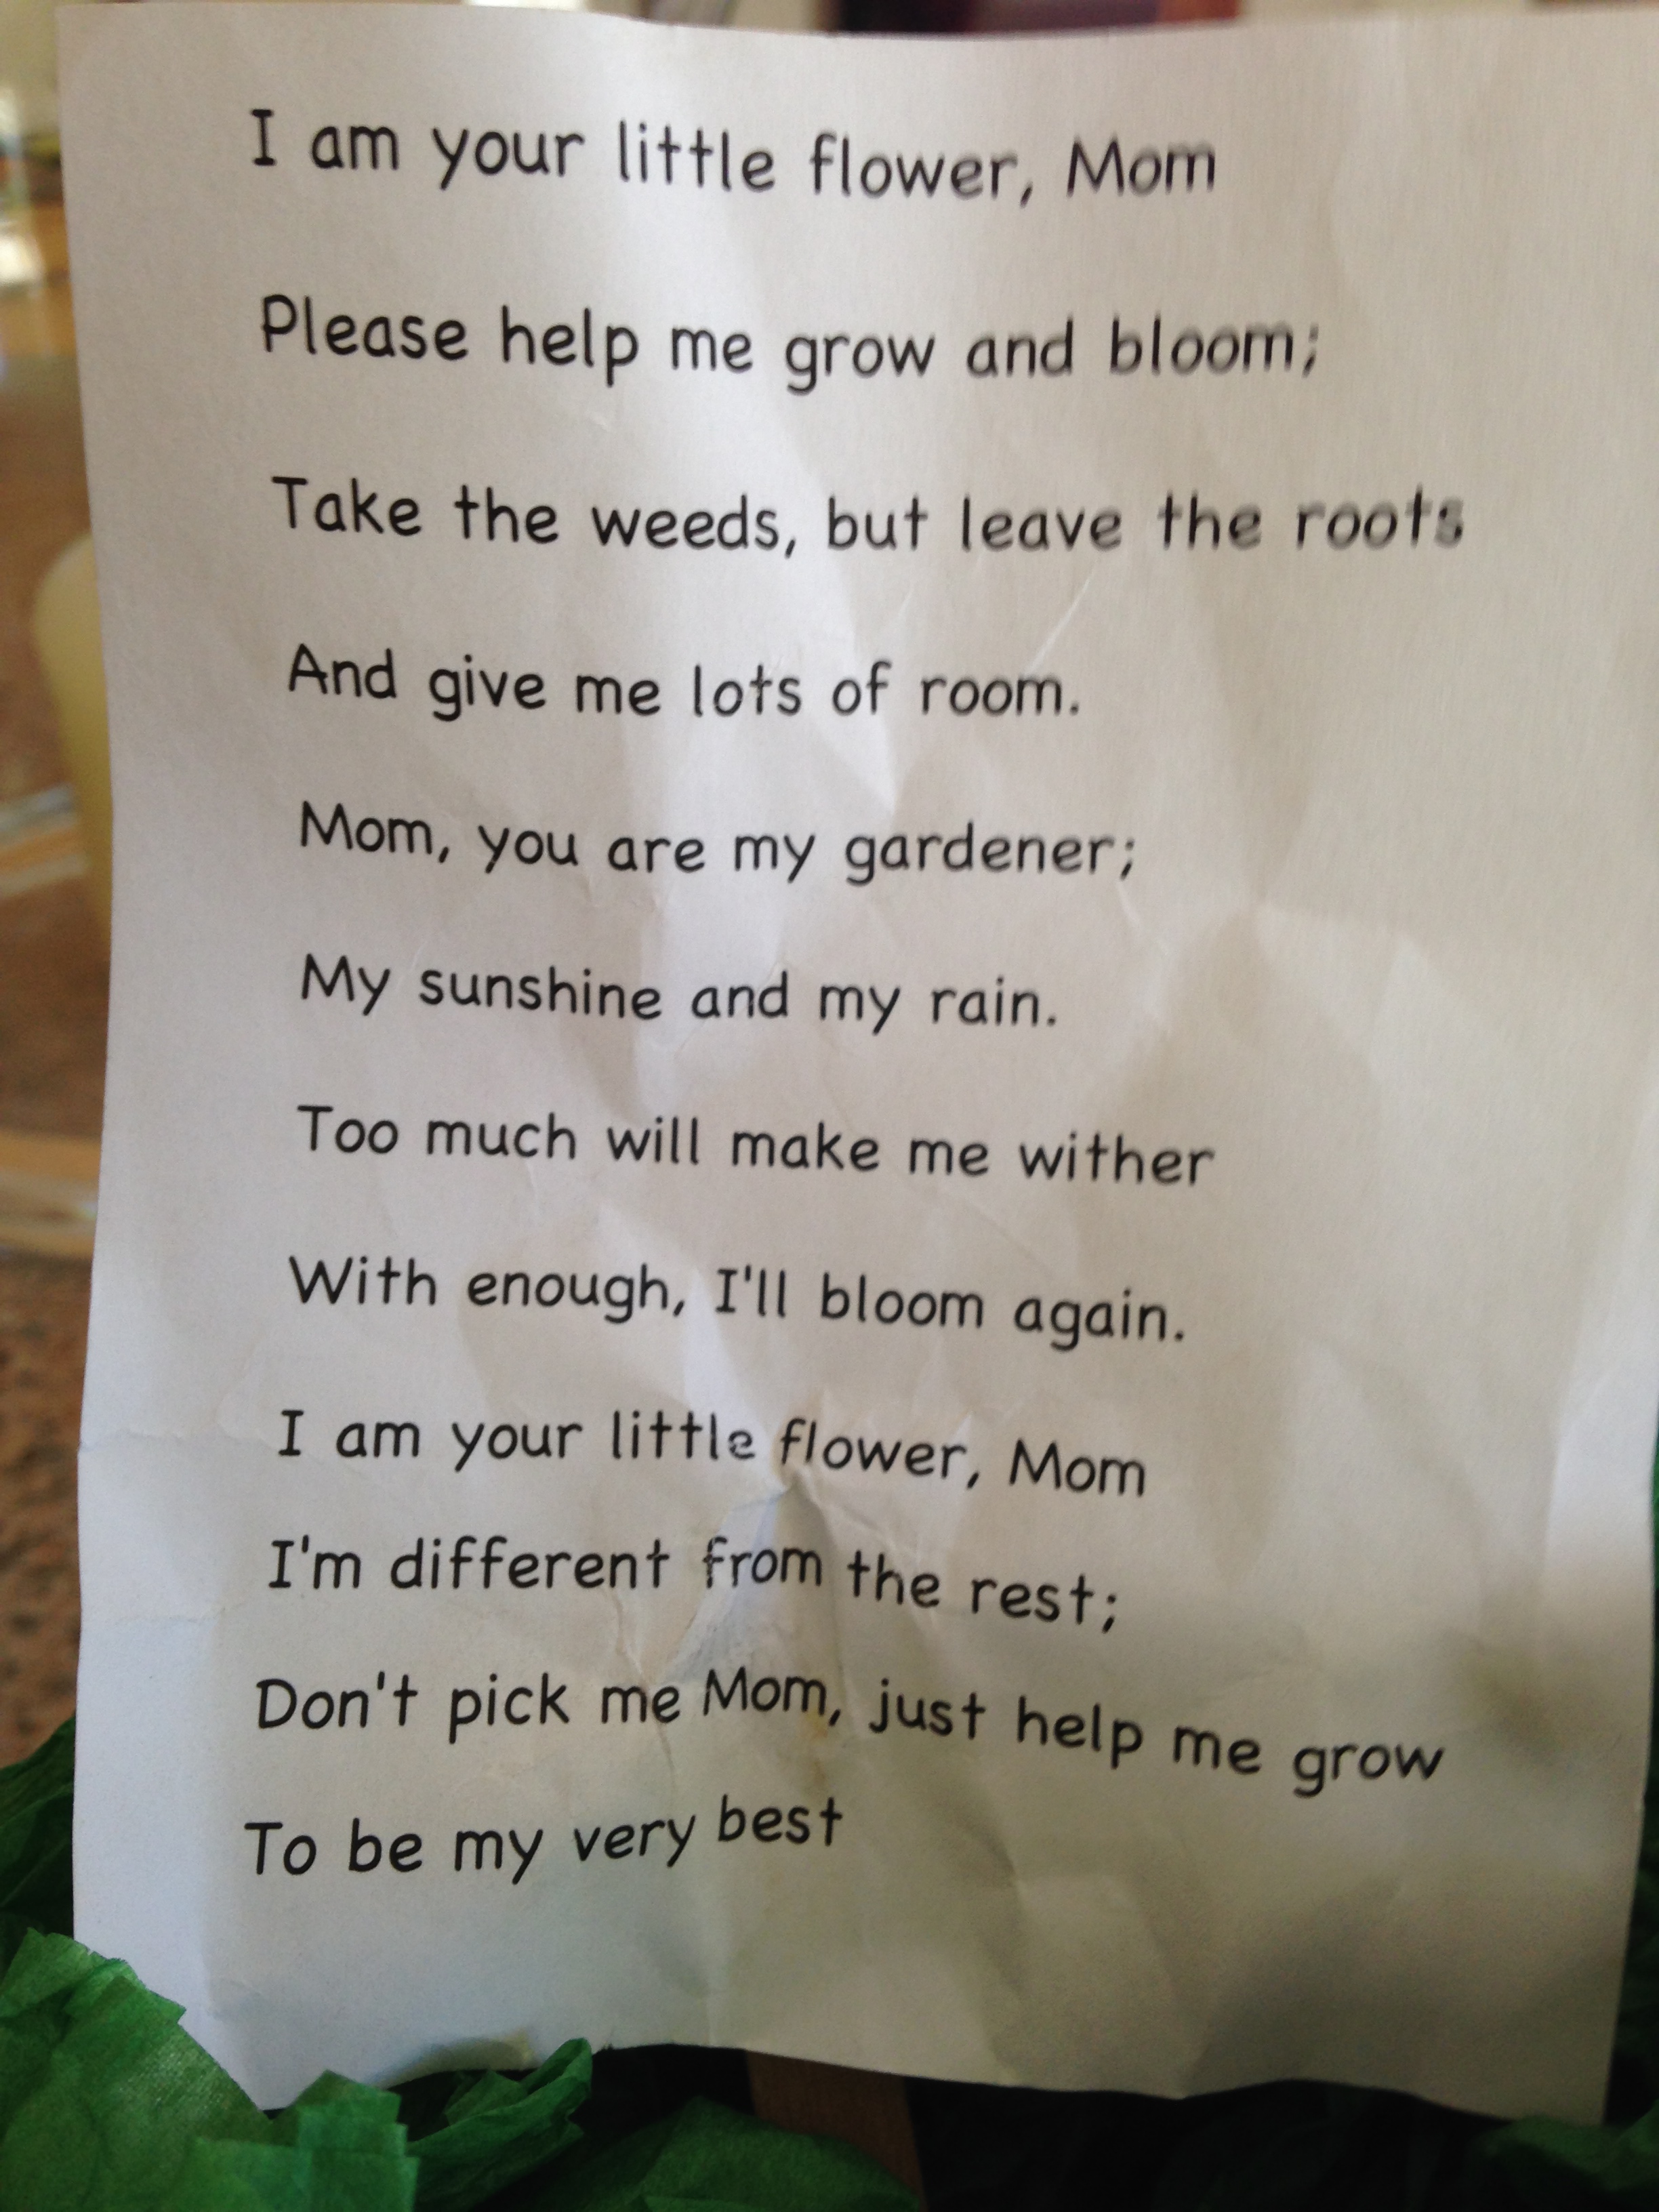 I am your little flower, Mom
Please help me grow and bloom;
Take the weeds, but leave the roots
And give me lots of room.
Mom, you are my gardener;
My sunshine and my rain.
Too much will make me wither
With enough, I'll bloom again.
I am your little flower, Mom
I'm different from the rest;
Don't pick me Mom, just help me grow
To be my very best